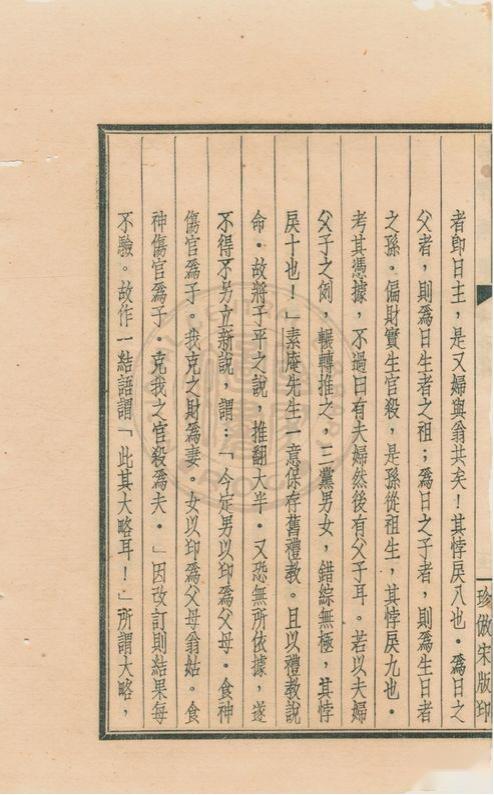 珍倣宋版印
者卽日主，是又婦與翁共矣！其悖戾八也．爲日之
父者，則爲日生者之祖；爲日之子者，則爲生日者
之孫．偏財實生官殺，是孫從祖生，其悖戾九也．
考其憑據，不過曰有夫婦然後有父子耳。若以夫婦
父子之例，輾轉推之，三黨男女，錯綜無極，其悖
戾十也！」素庵先生一意保存舊禮教。且以禮教說
命．故將子平之說，推翻大半．又恐無所依據，遂
不得不另立新說，謂：「今定男以印爲父母．食神
傷官爲子。我克之財爲妻。女以印爲父母翁姑。食
神傷官爲子．克我之官殺爲夫．」因改訂則結果每
不驗。故作一結語謂「此其大略耳！」所謂大略，